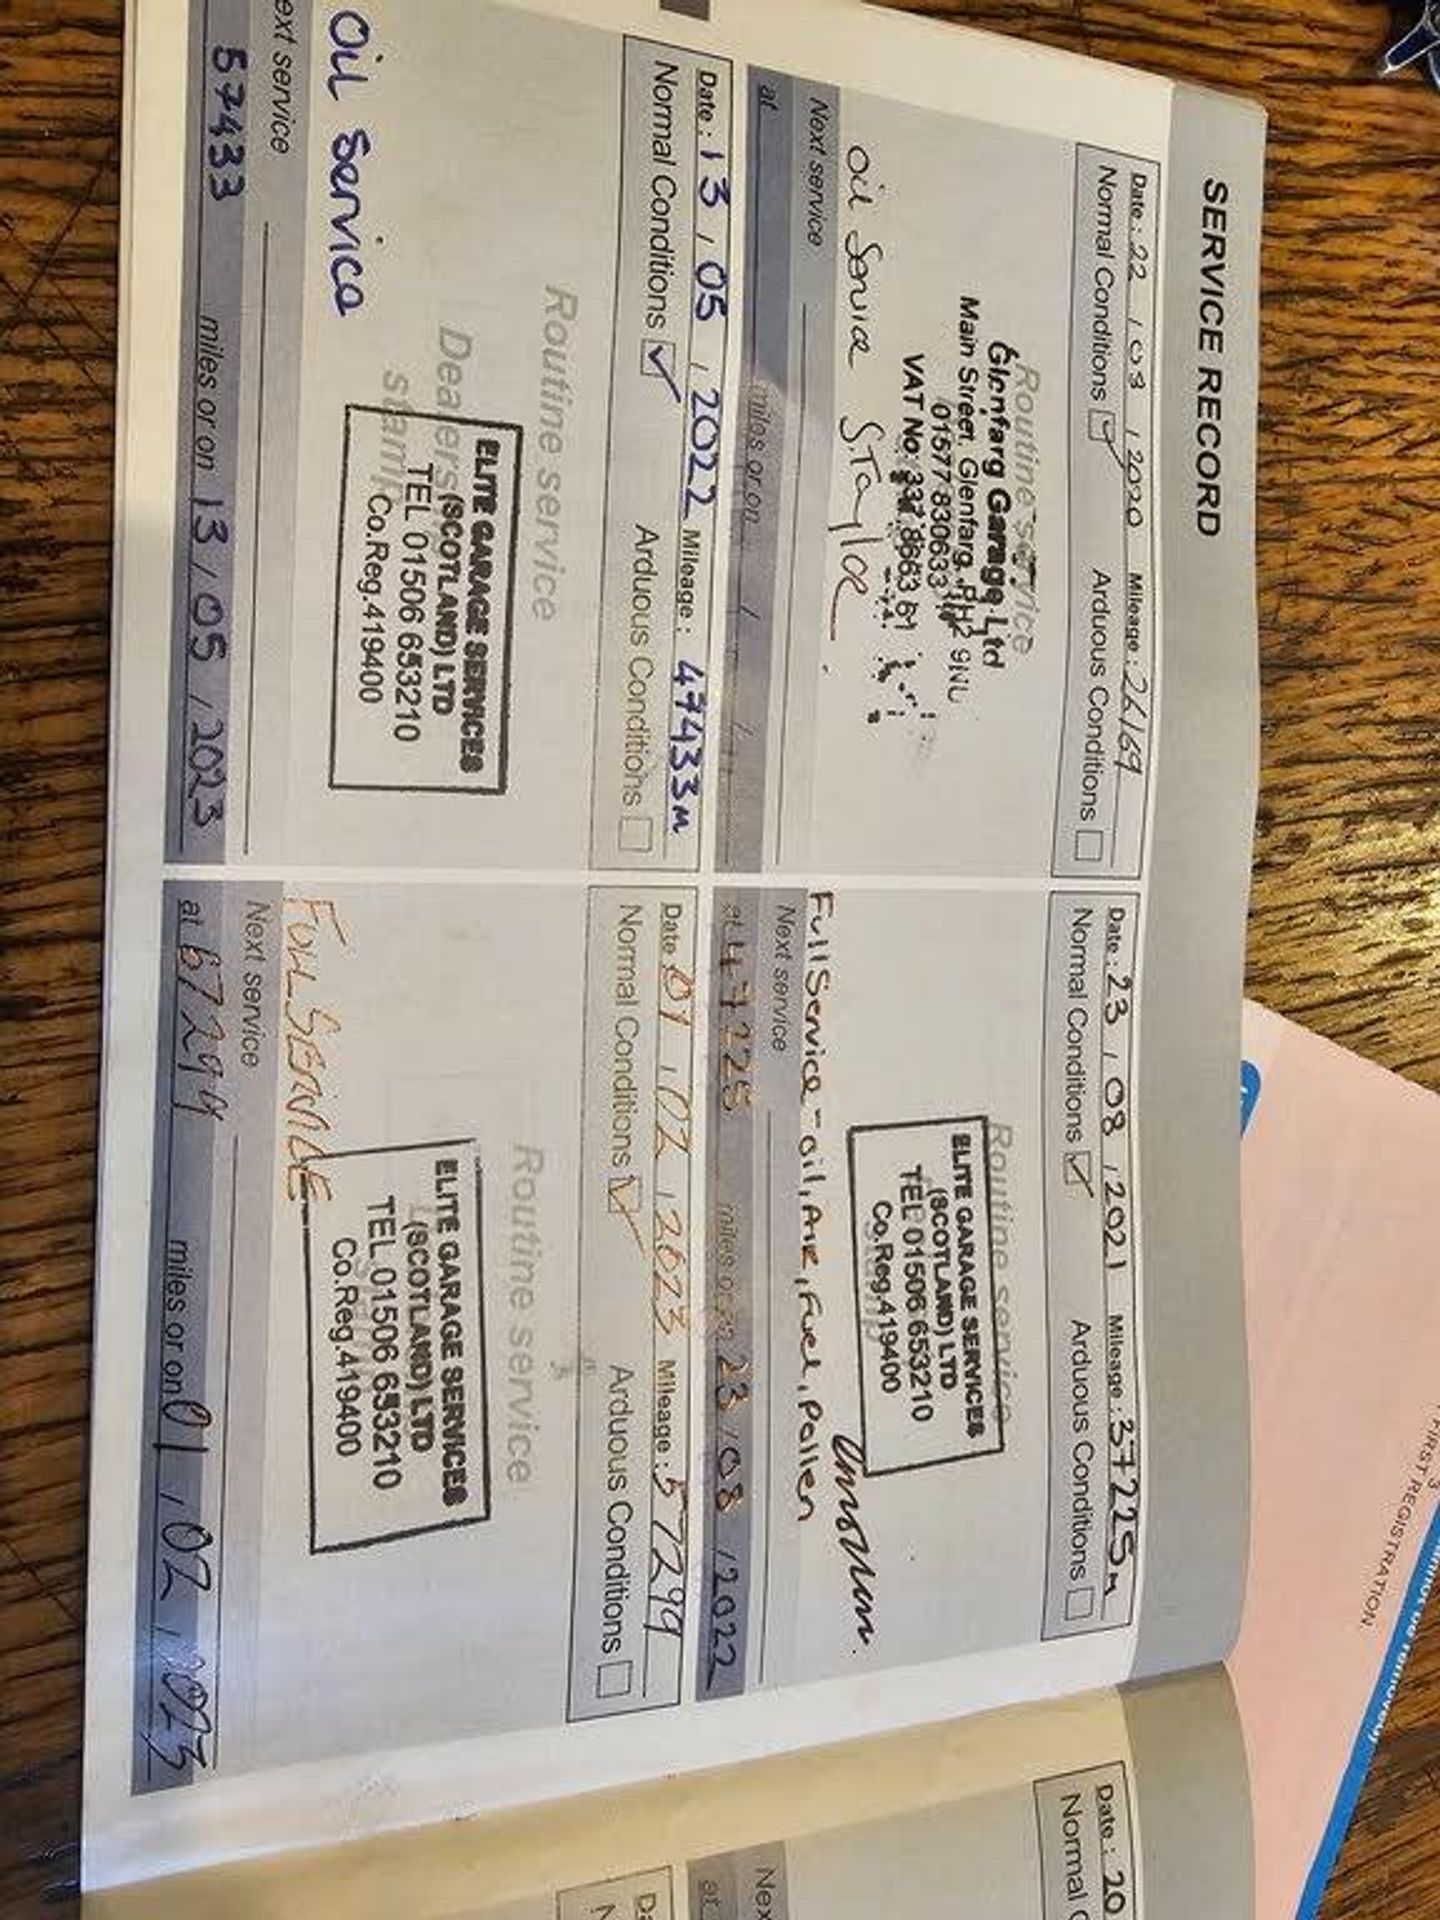 SERVICE RECORD
Date : 22 / 03 / 2020 Mileage : 26169
Normal Conditions Arduous Conditions
Routine service
Glenfarg Garage Ltd
Main Street, Glenfarg, PH2 9NU
01577 830633
VAT No. 337 8663 61
Oil Service S.Taylor
Next service
at miles or on / /
Date : 23 / 08 / 2021 Mileage : 37225m
Normal Conditions Arduous Conditions
Routine service
ELITE GARAGE SERVICES
(SCOTLAND) LTD
TEL 01506 653210
Co.Reg.419400
Full Service - oil, Air, Fuel, Pollen
Next service
at 47225 miles or on 23 / 08 / 2022
Date : 13 / 05 / 2022 Mileage : 47433m
Normal Conditions Arduous Conditions
Routine service
Dealers
stamp
ELITE GARAGE SERVICES
(SCOTLAND) LTD
TEL 01506 653210
Co.Reg.419400
Oil Service
ext service
57433 miles or on 13 / 05 / 2023
Date 01 / 02 / 2023 Mileage : 57299
Normal Conditions Arduous Conditions
Routine service
ELITE GARAGE SERVICES
(SCOTLAND) LTD
TEL 01506 653210
Co.Reg.419400
FULL SERVICE
Next service
at 67299 miles or on 01 / 02 / 2023
Date : 20
Normal C
Nex
at
Da
N
FIRST REGISTRATION